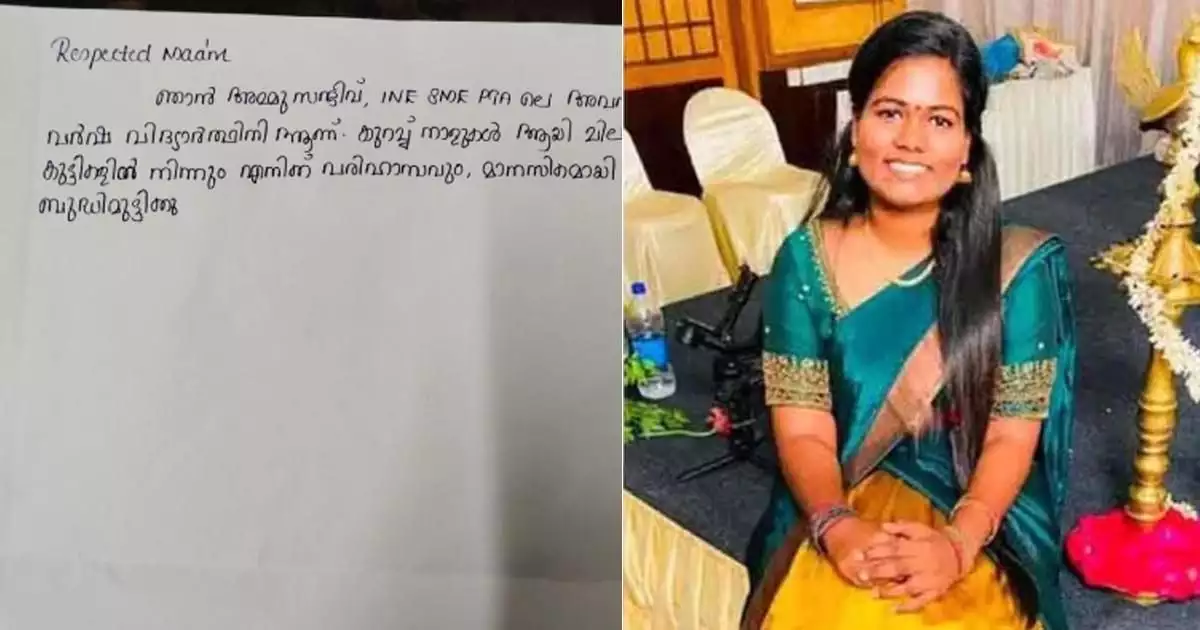 Respected Maa'm
ഞാൻ അമ്മു സജീവ്, INE SME PTA ലെ അവസ
വർഷ വിദ്യാർത്ഥിനി ആണ്. കുറച്ച് നാളുകൾ ആയി ചില
കുട്ടികളിൽ നിന്നും എനിക്ക് പരിഹാസവും, മാനസികമായി
ബുദ്ധിമുട്ടിക്കു